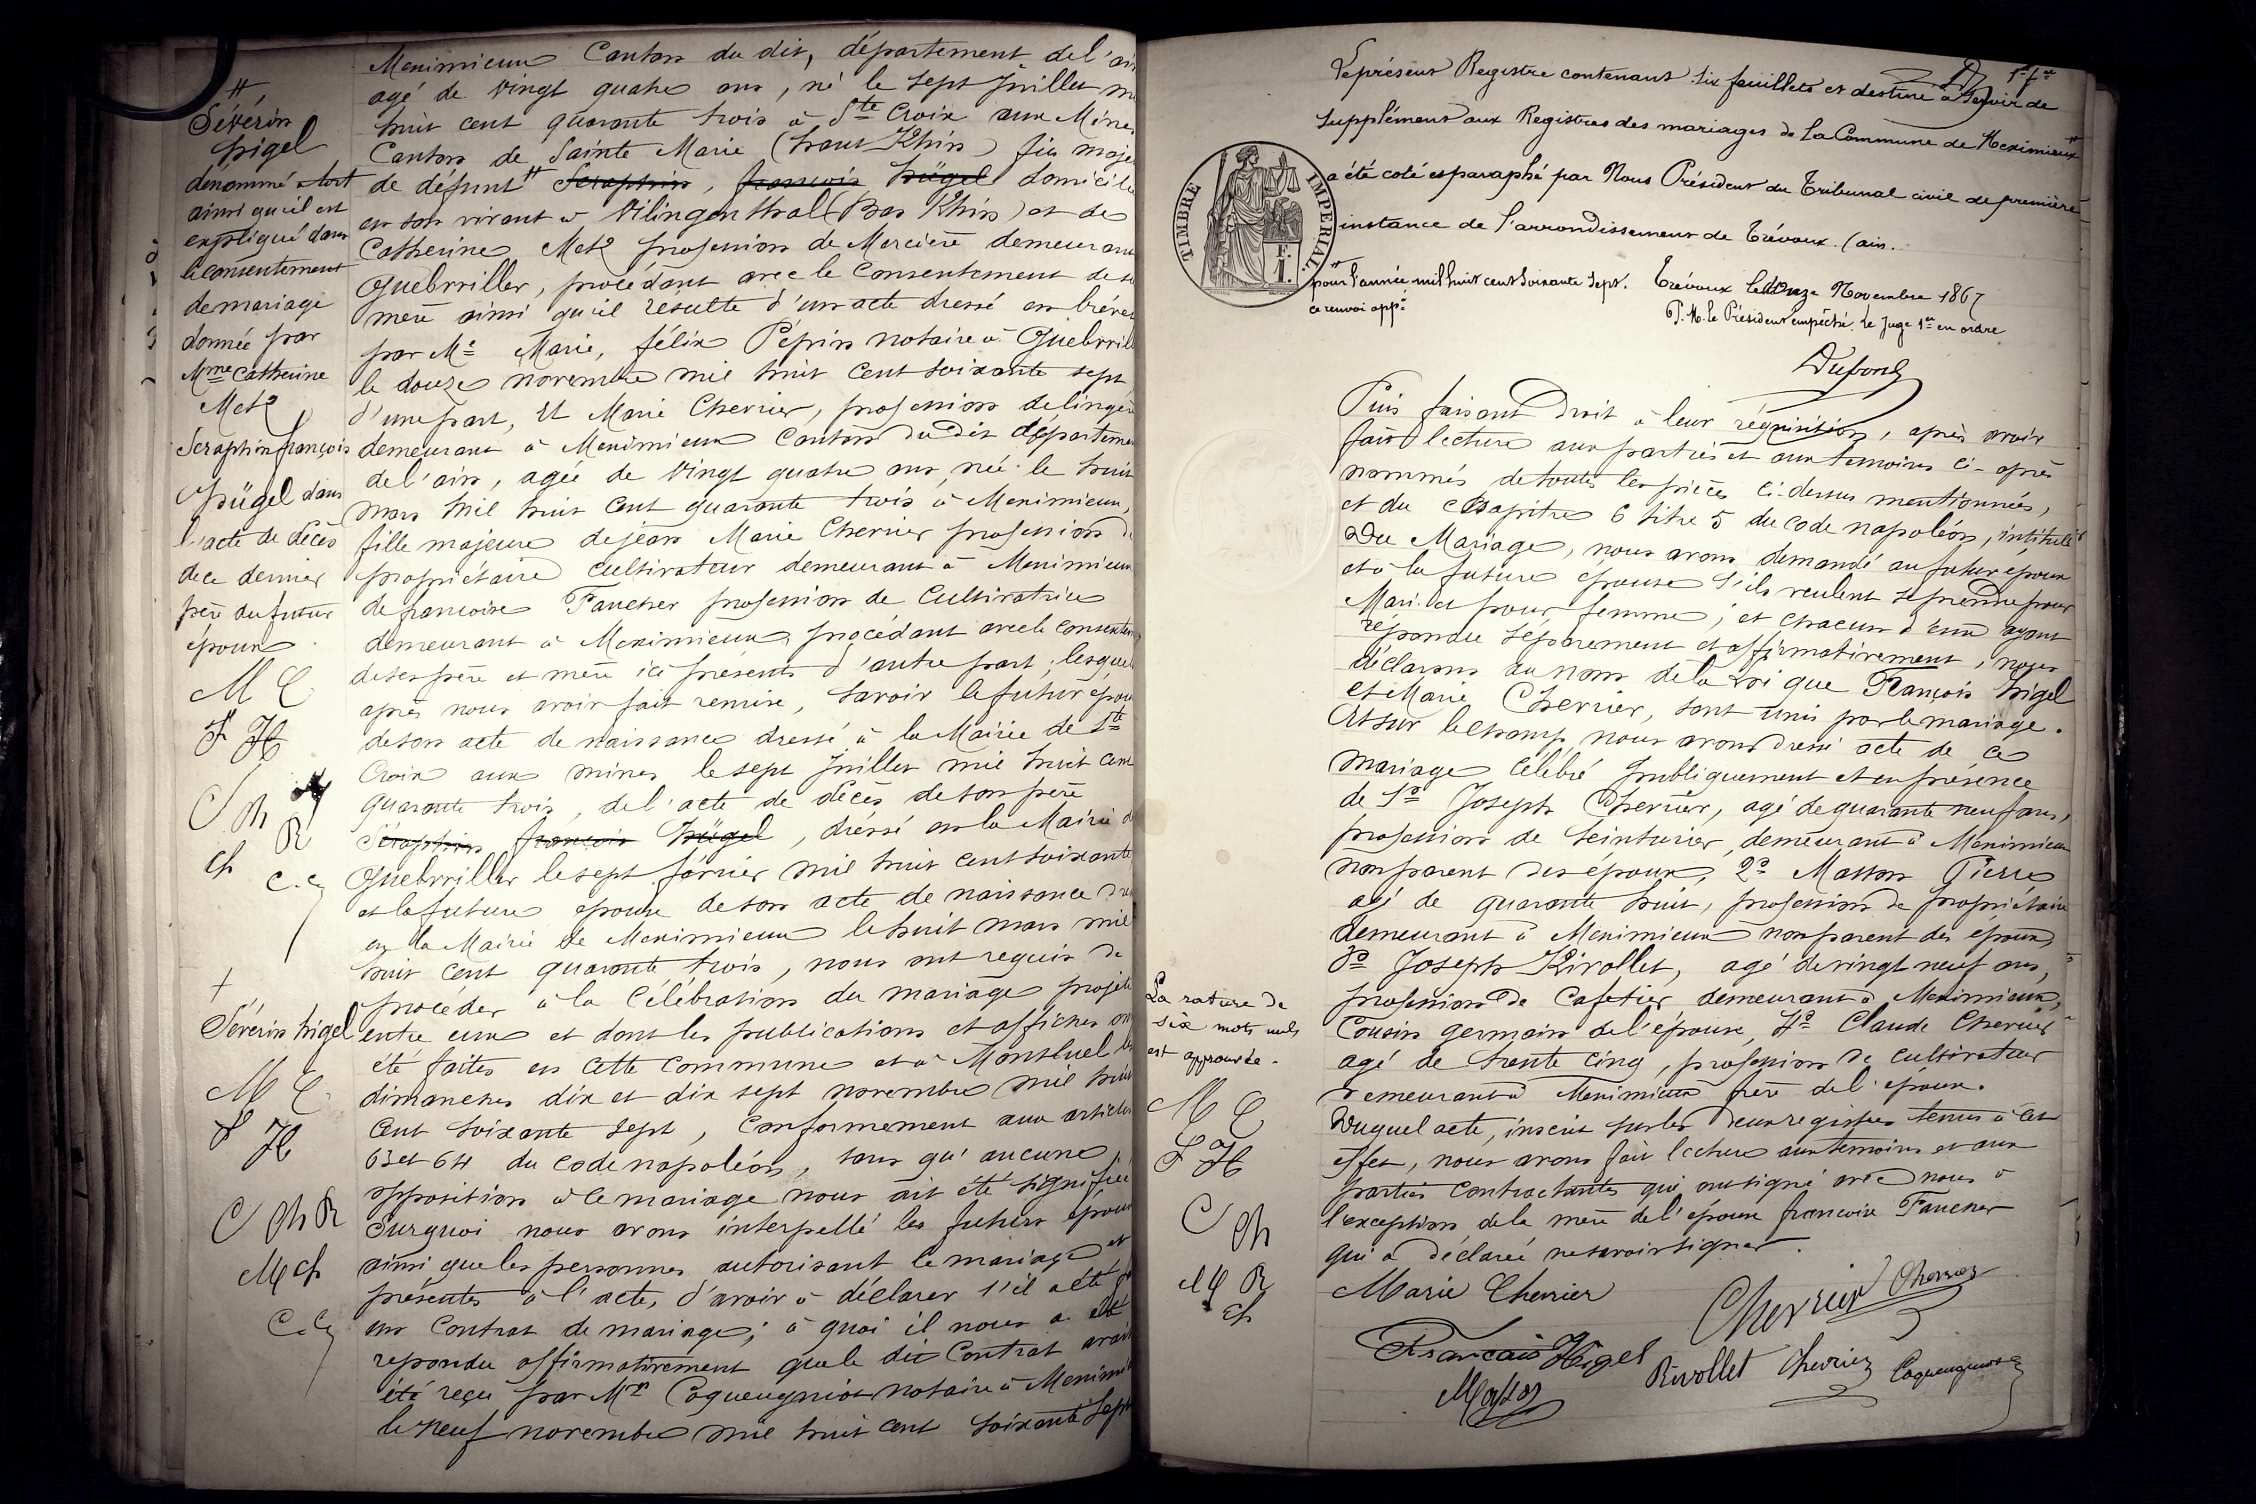 Meximieux Canton du dit, département de l'ain
agé de vingt quatre ans, né le sept juillet mil
huit cent quarante trois à Ste Croix aux Mines
Canton de Sainte Marie (haut Rhin) fils majeur
de défunt # Séraphin, françois hügel domicilié
en son vivant à Vilingenthal (Bas Rhin) et de
Catherine Metz profession de Mercière demeurant
Guebwiller, procédant avec le Consentement de sa
mère ainsi qu'il résulte d'un acte dressé en brévet
par Me Marie, félix Pépin notaire à Guebwiller
le douze novembre mil huit cent soixante sept
d'une part, Et Marie Chevrier, profession de lingère
demeurant à Meximieux Canton du dit département
de l'ain, agée de vingt quatre ans, née le huit
mars mil huit cent quarante trois à Meximieux,
fille majeure de jean Marie Chevrier profession de
propriétaire cultivateur demeurant à Meximieux
de françoise Faucher profession de Cultivatrice
demeurant à Meximieux, procédant avec le consentement
de ses père et mère ici présents d'autre part, lesquels
après nous avoir fait remise, savoir le futur époux
de son acte de naissance dressé à la Mairie de Ste
Croix aux mines le sept juillet mil huit cent
quarante trois, de l'acte de décès de son père
Séraphin françois hügel, dréssé en la Mairie de
Guebwiller le sept février mil huit cent soixante
et la future épouse de son acte de naissance
en la Mairie de Meximieux le huit mars mil
huit cent quarante trois, nous ont requis de
procéder à la Célébration du mariage projeté
entre eux et dont les publications et affiches ont
été faites en cette Commune et à Montluel les
dimanches dix et dix sept novembre mil huit
Cent soixante sept, Conformement aux articles
63 et 64 du code napoléon, sans qu'aucune
opposition à ce mariage nous ait été signifiée
Surquoi nous avons interpellé les futurs époux
ainsi que les personnes autorisant le mariage et
présentes à l'acte, d'avoir à déclarer s'il a été fait
un Contrat de mariage; à quoi il nous a été
repondu affirmativement que le dit Contrat avait
été reçu par Me Coqueugniot notaire à Meximieux
le neuf novembre mil huit cent soixante sept
#
Séverin
higel
dénommé à tort
ainsi qu'il est
expliqué dans
le consentement
de mariage
donnée par
Mme Catherine
Metz
Seraphin françois
hügel dans
l'acte de décès
de ce dernier
père du futur
époux
M C
F H
C Ch
R
ch
C.C
+
Séverin higel
M C
F H
C Ch R
M ch
C.C
Le présent Registre contenant six feuillets et destiné à servir de
1er ft
supplément aux Registres des mariages de la Commune de Meximieux #
a été coté et paraphé par Nous Président du Tribunal civil de première
instance de l'arrondissement de Trévoux. (ain.
TIMBRE IMPERIAL.
# pour l'année mil huit cent soixante sept.
ce renvoi appé
Trévoux le Onze Novembre 1867
P. M. le Président empêché. Le Juge 1er en ordre
Puis faisant Droit à leur réquisition, après avoir
fait lecture aux parties et aux temoins ci-après
nommés de toutes les pièces ci-dessus mentionnées,
et du chapitre 6 titre 5 du code napoléon, intitulé
Du Mariage, nous avons demandé au futur époux
et à la future épouse s'ils veulent se prendre pour
Mari et pour femme; et chacun d'eux ayant
répondu séparement et affirmativement, nous
déclarons au nom de la loi que François higel
et Marie Chevrier, sont unis par le mariage.
Et sur le champ nous avons dressé acte de ce
mariage Célébré publiquement et en présence
de 1o Joseph Chevrier, agé de quarante neuf ans,
profession de teinturier, demeurant à Meximieux
non parent des époux, 2o Masson Pierre
agé de quarante huit, profession de propriétaire
demeurant à Meximieux non parent des époux,
3o Joseph Rivollet, agé de vingt neuf ans,
profession de Cafetier demeurant à Meximieux,
Cousin germain de l'épouse, 4o Claude Chevrier
agé de trente cinq, profession de cultivateur
demeurant à Meximieux frère de l'épouse.
Duquel acte, inscrit sur les deux registres tenus à cet
effet, nous avons fait lecture aux temoins et aux
parties Contractantes qui ont signé avec nous à
l'exception de la mère de l'épouse françoise Faucher
qui a déclarée ne savoir signer.
La rature de
six mots nuls
est approuvée.
M C
F H
C Ch
M R
ch
Marie Chevrier
Chevrier Chevrier
François Higel
Rivollet Chevrier Coqueugniot
Masson